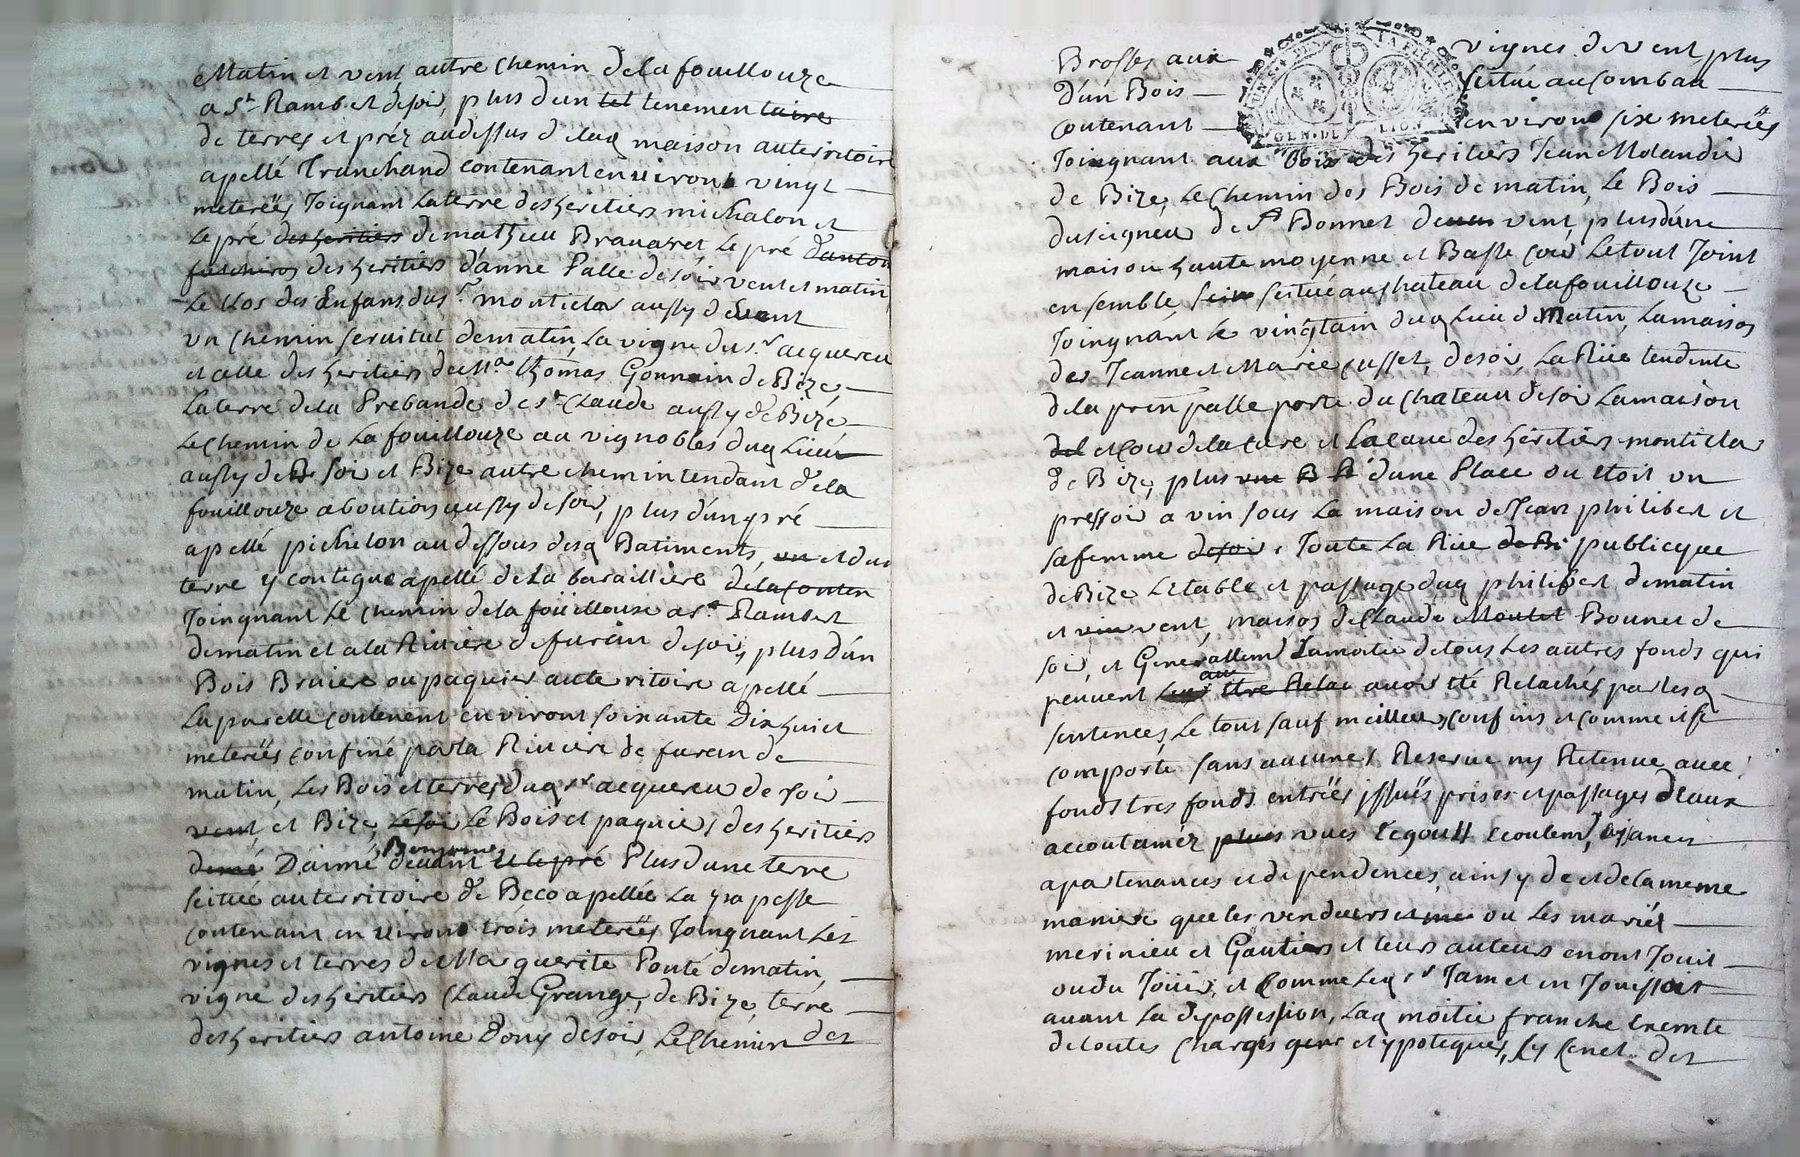 Matin et vent autre chemin dela fouillouze
a St Rambert desoir, plus dun tel tenemen taire
de terres et préz audessus delaq maison auterritoire
apellé Tranchand contenant environt vingt
meterëes Joignant laterre desheritiers michalon et
Le pré desheritiers demathieu Bravaret Le pré danton
des heritiers d'anne Palle desoir vent et matin
Le Clos des Enfans du sr. montiela aussy devent
un chemin servitut dematin, La vigne du sr. acquereu
et celle des heritiers de Mre Thomas Gonnain de Bize
Laterre dela Prebande de st Claude aussy de Bize
Le chemin de La fouillouze aa vignobles duq Lieu
aussy de B soir et Bize autre chemin tendant dela
fouillouze aboution aussy desoir, plus d'un pré
apellé pichelon audessous desq Batiments, un et dun
terre y contigue apellé de La baraillière delacontin
Joingnant Le chemin dela foüillouse a st Rambert
dematin et ala Riviere defuran desoir, plus d'un
Bois Bruiere ou paquier aute ritoire apellé
La parelle contenent environt soixante dixhuict
meterëes confiné parla Riviere de furan de
matin, Les Bois et terres duq sr acquereu de soir
vent, et Bize, Lesoir Le Bois et paquier, des heritiers
demé D'aimé Benevent devant et lepré Plus dune terre
scituée auterritoire de Beco apellée La
contenant environt trois meterëes Joingnant Les
vignes et terres de Marguerite Ponté dematin,
vigne desheritiers Claude Grange, de Bize, terre
desheritiers antoine Dony desoir, Le Chemin des
Brosses aux vignes devent plus
D'un Bois scitué au Combau
contenant environt six meterëes
Joingnant aux Bois des heritiers Jean Molandié
de Bize, Le Chemin des Bois de matin, Le Bois
duseigneu de St Bonnet de vent, plus d'une
maison haute moyenne et Basse cour Le tout Joint
ensemble, scituée au chateau delafouillouze
Joingnant Le vingtain duq Lieu de Matin, La maison
des Jeanne et Marie Cusset, desoir, La Rüe tendente
dela prin palle porte du chateau desoir La maison
del et cour dela cure et La cave des heritiers montiela
de Bize, plus une B dune Place ou etoit un
pressoir a vin sous La maison de Jean philibert et
safemme desoir, Toute La Rüe de Bi publicque
de Bize Letable et passage duq philibert dematin
et vent, maison de Claude Moulet Bonnet de
soir, et Generallemt Lamoitie detous Les autres fonds qui
peuvent être Relac avoir eté Relachés par lesq
sentences Le tout sauf meilleurs confins et comme il se
comporte sans aucunes Reserve ny Retenue avec
fonds tres fonds entrées issuës prises et passages d'eaux
accoutuméz plus vues Legoutt ecoulemt, aysances
apartenances et dependences, ainsy de et dela meme
maniere que les vendeurs et me ou Les mariés
merinieu et Gautier et leurs auteurs enont Jouit
ou du Joüir, et Comme Leq sr Jamet en Jouissoit
avant La depossession, Laq moitié franche Exemte
detoutes Charges et ypoteques, Ly Cenet des
GEN·DE LION